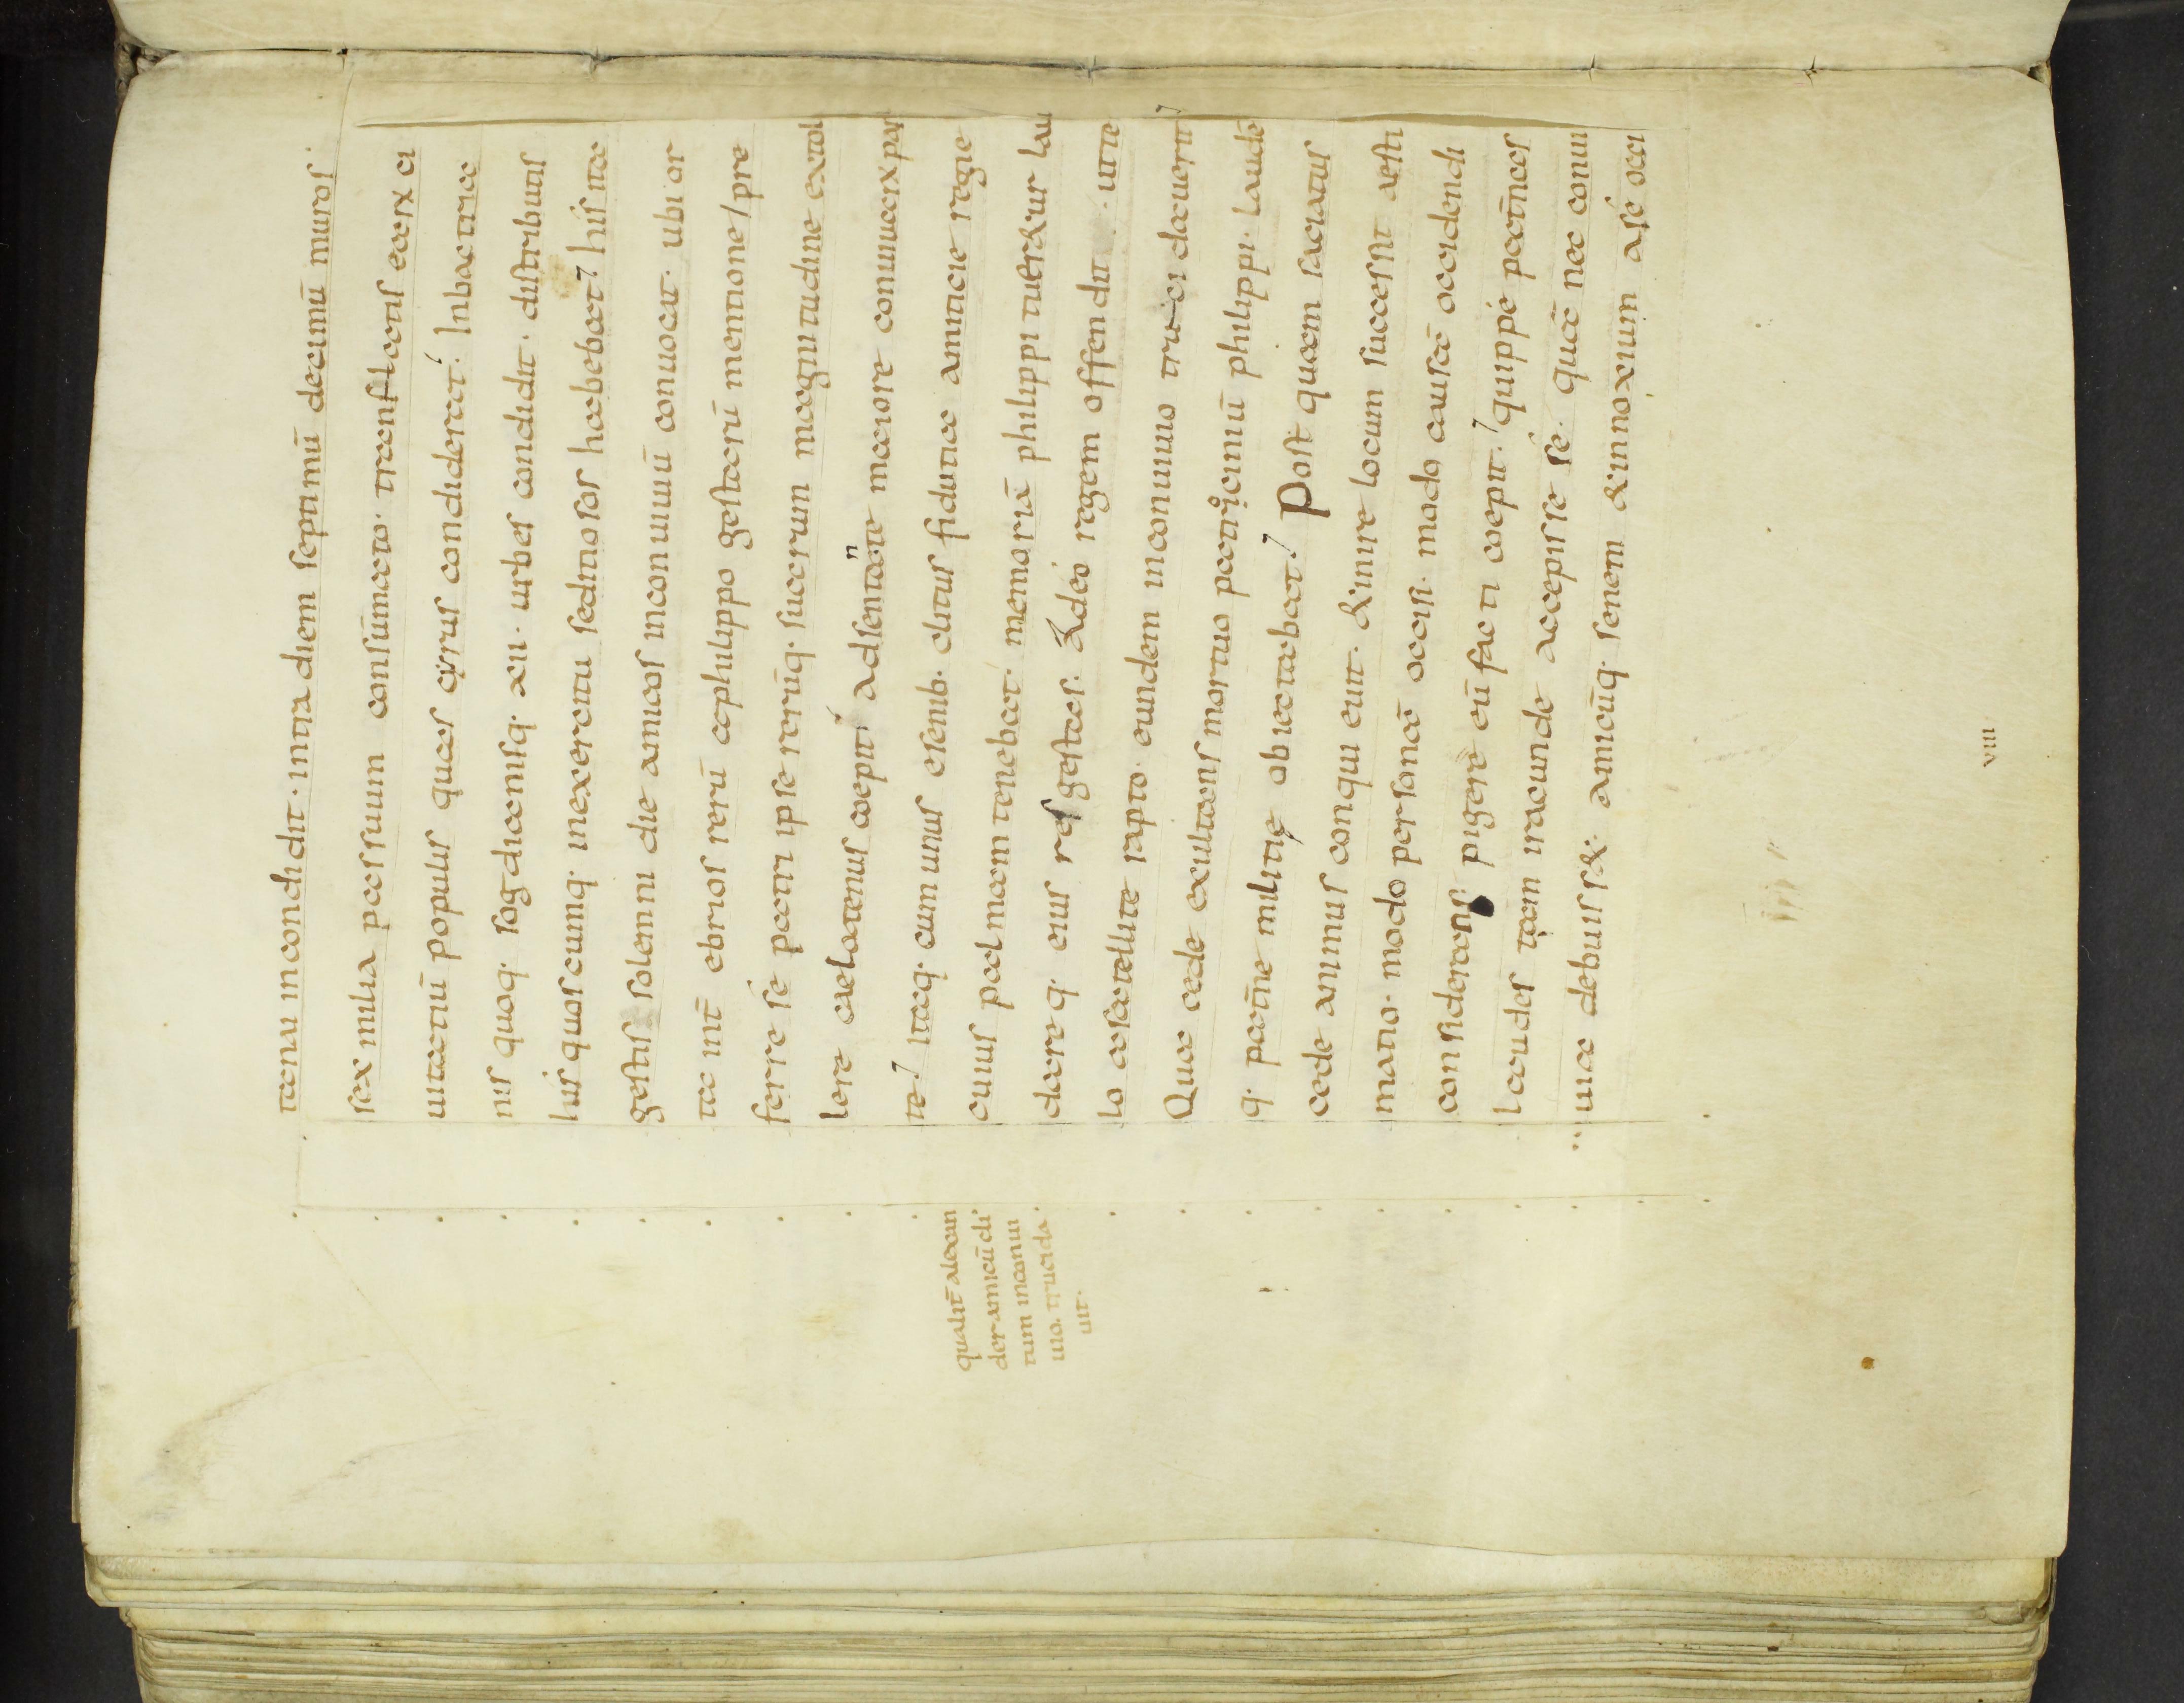 tanai in condidit · intra diem septimū decimū muros ·
sex milia passuum consūmato · translatis eaɤ ci
uitatiū populis quas cyrus condiderat ! In bactria
nis quoq· sogdianisq· xii · urbes condidit · distributis
his quoscumq· in exercitu seditiosos habebat ! his ita
gestis solemni die amicos in conuiuiū conuocat · ubi or
ta int̄ ebrios rerū a philippo gestarū mentione / pre
ferre se patri ipse rerūq· suarum magnitudine extol
lere caelo tenus coepit adsentāte maiore conuiuaɤ par
te ! itaq· cum unus e senib· clitus fidutia amicitie regie
cuius palmam tenebat · memoriā philippi tueret̄ur lau
dareq· eius res gestas. Adeo regem offendit · ut te
lo a satellite rapto · eundem in conuiuio trucidauerit !
Qua cede exultans mortuo patrocimiū philippi · laudē
q· pat̄ne militię obiectabat ! Post quam saciatus
cede animus conquieuit · & in ire locum successit aesti
matio · modo personā occisi · modo causā occidendi
considerans pigere eū facti coepit ! quippe pat̄nas
laudes tam iracunde accepisse se · quā nec conui
uia debuiss& · amicūq· senem & innoxium a se occi
qualit̄ alexan
der amicū cli
tum in conui
uio · trucida
uit ·
viii